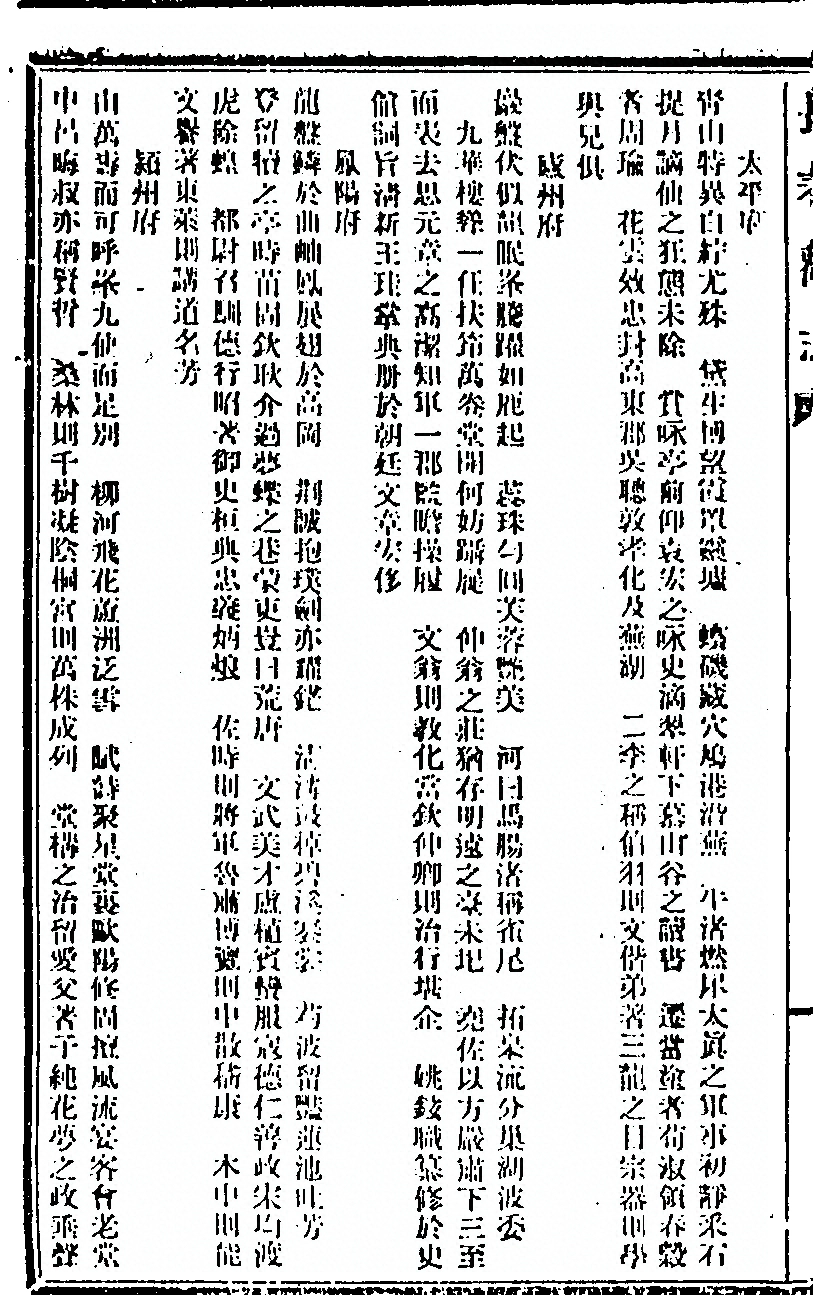 太平府
青山特異白紵尤殊 黛生國望霞單靈墟 蟂磯藏穴鳩港沿蕪 牛渚燃犀太眞之軍事初靜采石
捉月謫仙之狂態未除 賞咏亭前仰袁宏之咏史滴翠軒下慕山谷之讀書 遷當塗者荀淑領春穀
者周瑜 花雲效忠封高東郡吳聰敦孝化及蕪湖 二李之稱伯羽則文偕弟著三龍之目宗器則學
與兄俱
廬州府
巖盤伏似龍眠峯騰躍如雁起 蕊珠勻圓芙蓉艷美 河曰馬腸渚稱雀尾 拓皋流分巢湖波委
九華樓聳一任扶筇萬卷堂開何妨躡屣 仲翁之莊猶存明遠之臺未圯 堯佐以方嚴肅下三至
而表去思元章之高潔知軍一郡監瞻操履 文翁則教化當欽仲卿則治行堪企 姚鉉職纂修於史
館詞旨淸新王珪掌典冊於朝廷文章宏侈
鳳陽府
龍盤鱗於曲岫鳳展翅於高岡 荆誠抱璞劍亦耀鋩 淸濤鼓棹碧溪褰裳 芍波留艷蓮池吐芳
登留犢之亭時苗固欽耿介過夢蝶之巷蒙吏豈曰荒唐 文武美才盧植實能服寇德仁善政宋均渡
虎除蝗 都尉召馴德行昭著御史桓典忠義炳煌 佐時則將軍魯肅博覽則中散嵇康 木中則能
文譽著東萊則講道名芳
潁州府
山萬壽而可呼峯九仙而足別 柳河飛花蘆洲泛雪 賦詩聚星堂裏歐陽修固擅風流宴客會老堂
中呂晦叔亦稱賢哲 桑林則千樹凝陰桐宮則萬株成列 堂構之治留愛父著于純花夢之政垂聲